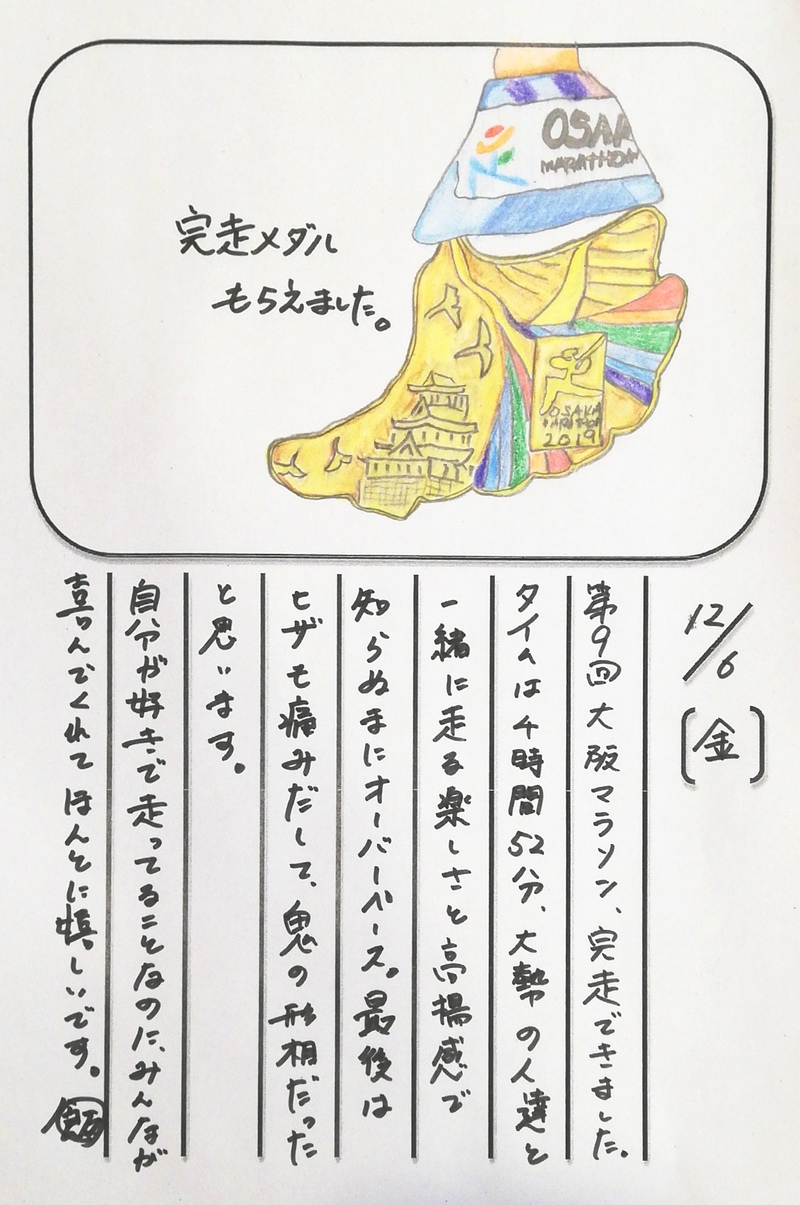 OSAKA
MARATHON
完走メダル
もらえました。
OSAKA
MARATHON
2019
12/6
〔金〕
第9回大阪マラソン、完走できました。
タイムは4時間52分、大勢の人達と
一緒に走る楽しさと高揚感で
知らぬまにオーバーペース。最後は
ヒザも痛みだして、鬼の形相だった
と思います。
自分が好きで走ってることなのに、みんなが
喜んでくれてほんとに嬉しいです。